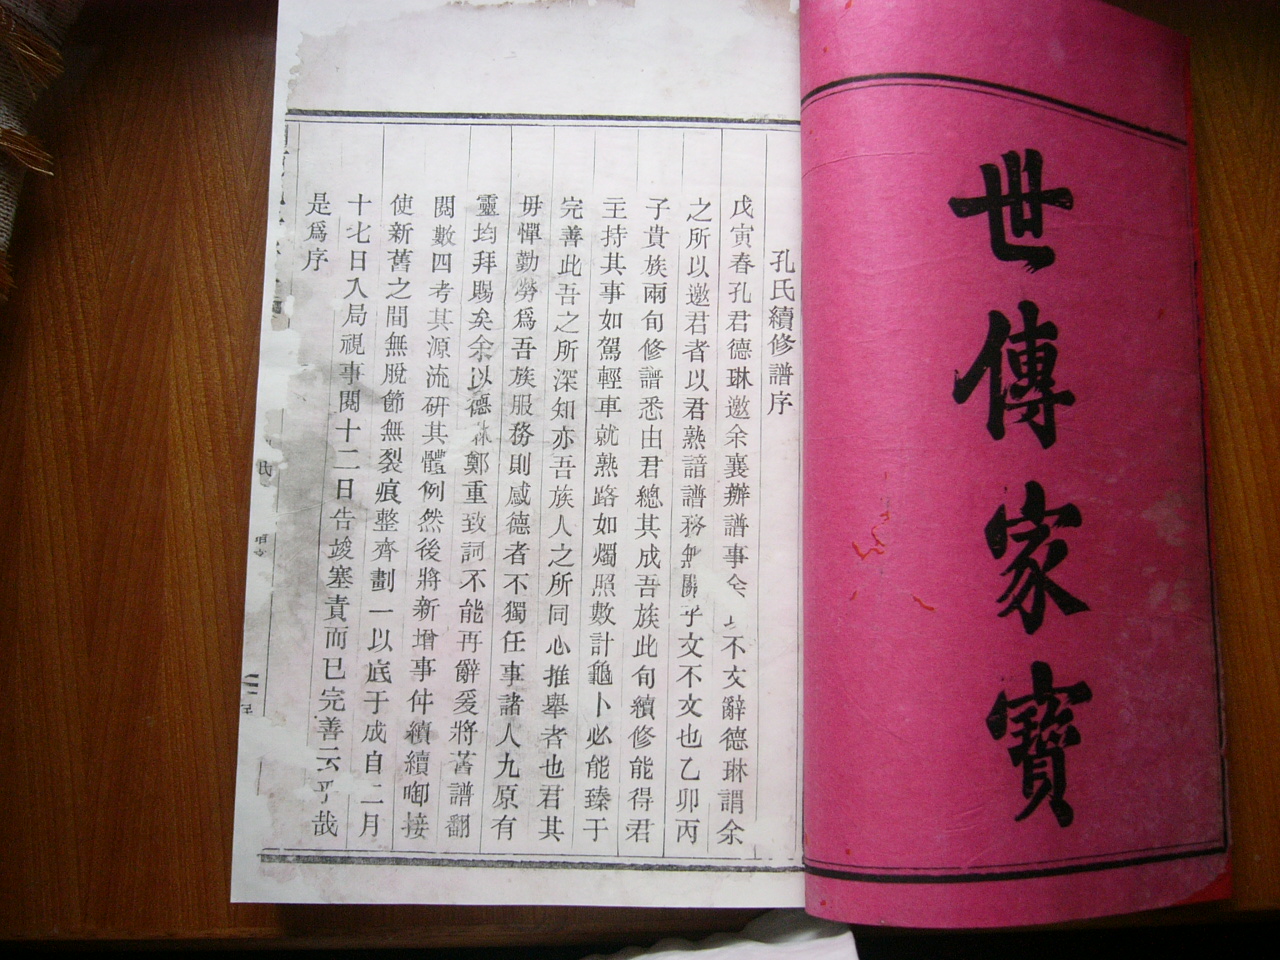 世傳家寶
孔氏續修譜序
戊寅春孔君德琳邀余襄辦譜事余 不文辭德琳謂余
之所以邀君者以君熟諳譜務無關乎文不文也乙卯丙
子貴族兩旬修譜悉由君總其成吾族此旬續修能得君
主持其事如駕輕車就熟路如燭照數計龜卜必能臻于
完善此吾之所深知亦吾族人之所同心推舉者也君其
毋憚勤勞爲吾族服務則感德者不獨任事諸人九原有
靈均拜賜矣余以德琳鄭重致詞不能再辭爰將舊譜翻
閱數四考其源流研其體例然後將新增事件續續啣接
使新舊之間無脫節無裂痕整齊劃一以底于成自二月
十七日入局視事閱十二日告竣塞責而已完善云乎哉
是爲序
氏